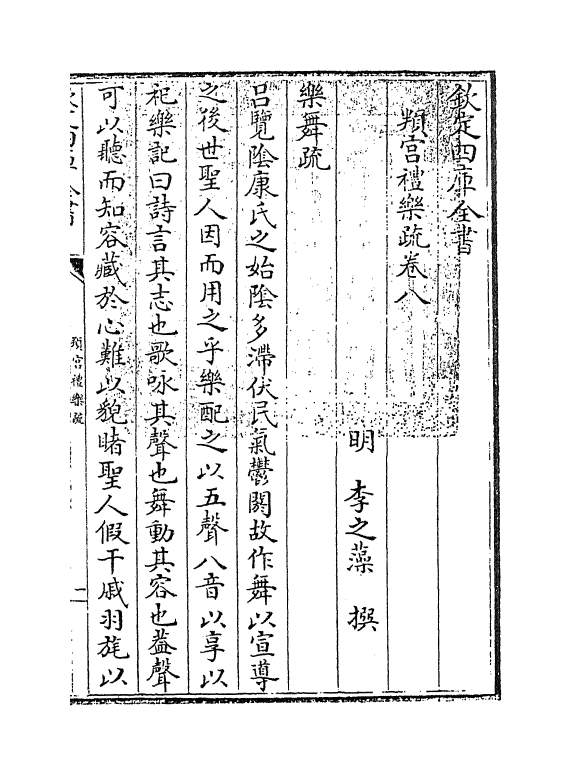 欽定四庫全書
頖宫禮樂疏卷八
明　李之藻　撰
樂舞疏
吕覽隂康氏之始隂多滯伏民氣鬱閼故作舞以宣導
之後世聖人因而用之乎樂配之以五聲八音以享以
祀樂記曰詩言其志也歌咏其聲也舞動其容也葢聲
可以聽而知容藏於心難以貌睹聖人假干戚羽旄以
頖宫禮樂疏